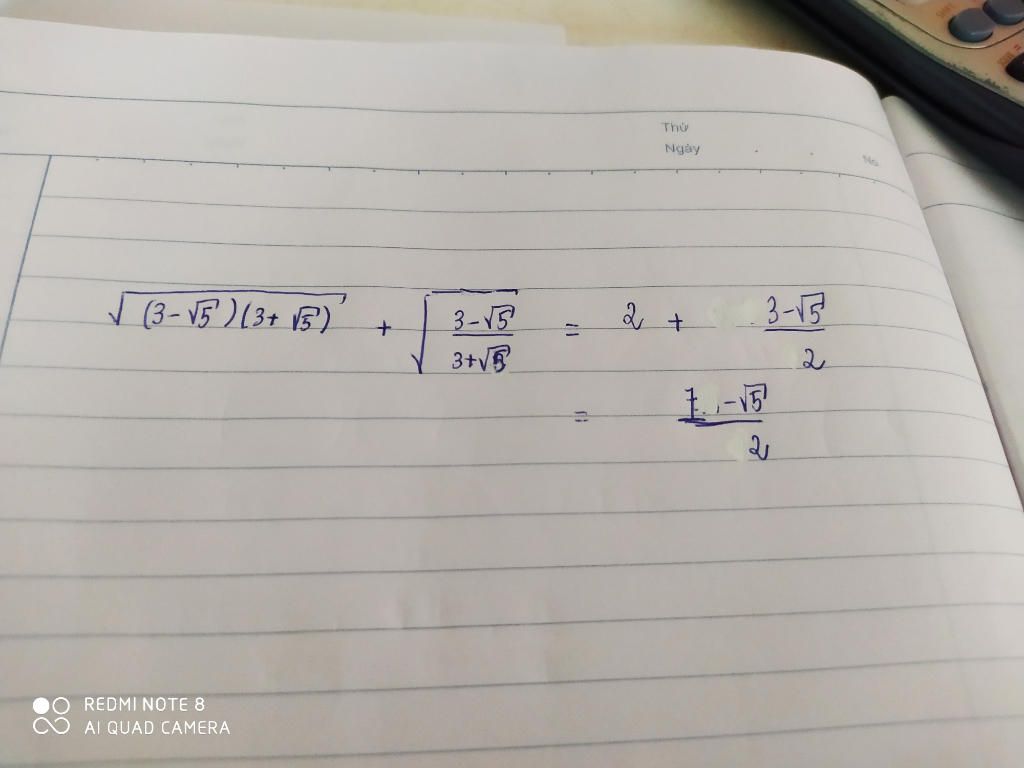 Thứ
Ngày
No
√((3-√5)(3+√5)) + √((3-√5)/(3+√5)) = 2 + (3-√5)/2
= (7-√5)/2
REDMI NOTE 8
AI QUAD CAMERA